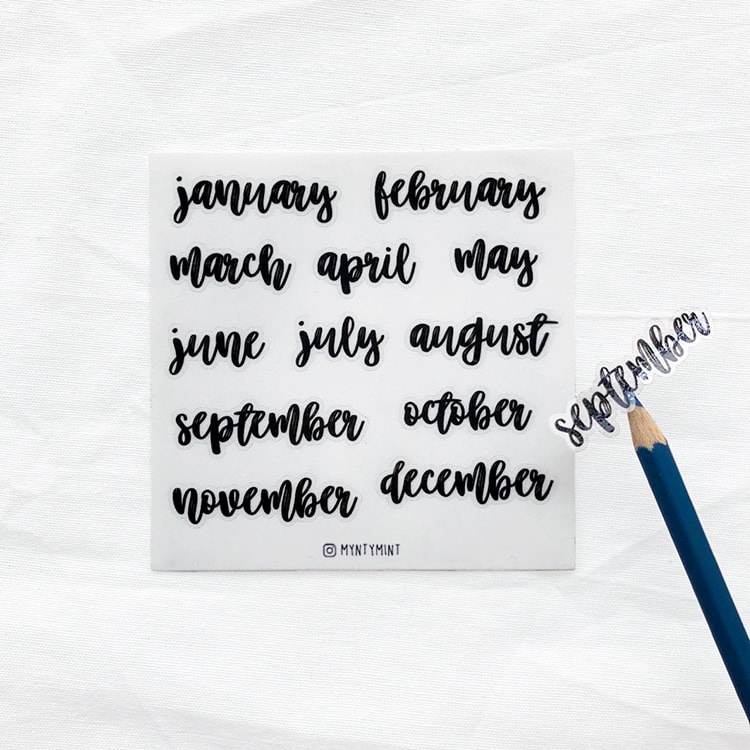 january february
march april may
june july august
september october
november december
MYNTYMINT
september